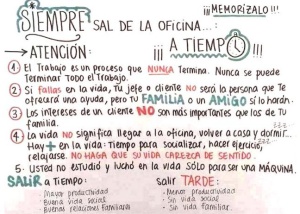 ¡¡¡MEMORÍZALO!!!
SIEMPRE SAL DE LA OFICINA...:
→ATENCIÓN: ¡¡¡ A TIEMPO !!!
1) El Trabajo es un proceso que NUNCA Termina. Nunca se puede
Terminar Todo el Trabajo.
2) Si fallas en la vida, tu jefe o cliente NO será la persona que Te
ofrecerá una ayuda, pero tu FAMILIA o un AMIGO sí lo harán.
3) Los intereses de un cliente NO son más importantes que los de Tu
familia.
4) La vida NO significa llegar a la oficina, volver a casa y dormir...
Hay + en la vida: Tiempo para socializar, hacer ejercicio,
relajarse. NO HAGA QUE SU VIDA CAREZCA DE SENTIDO.
5. Usted no estudió y luchó en la vida SÓLO para ser UNA MÁQUINA.
SALIR a Tiempo: salir TARDE:
- Mayor productividad - Menor productividad
- Buena vida social - Sin vida social
- Buenas relaciones familiares - Sin vida familiar.